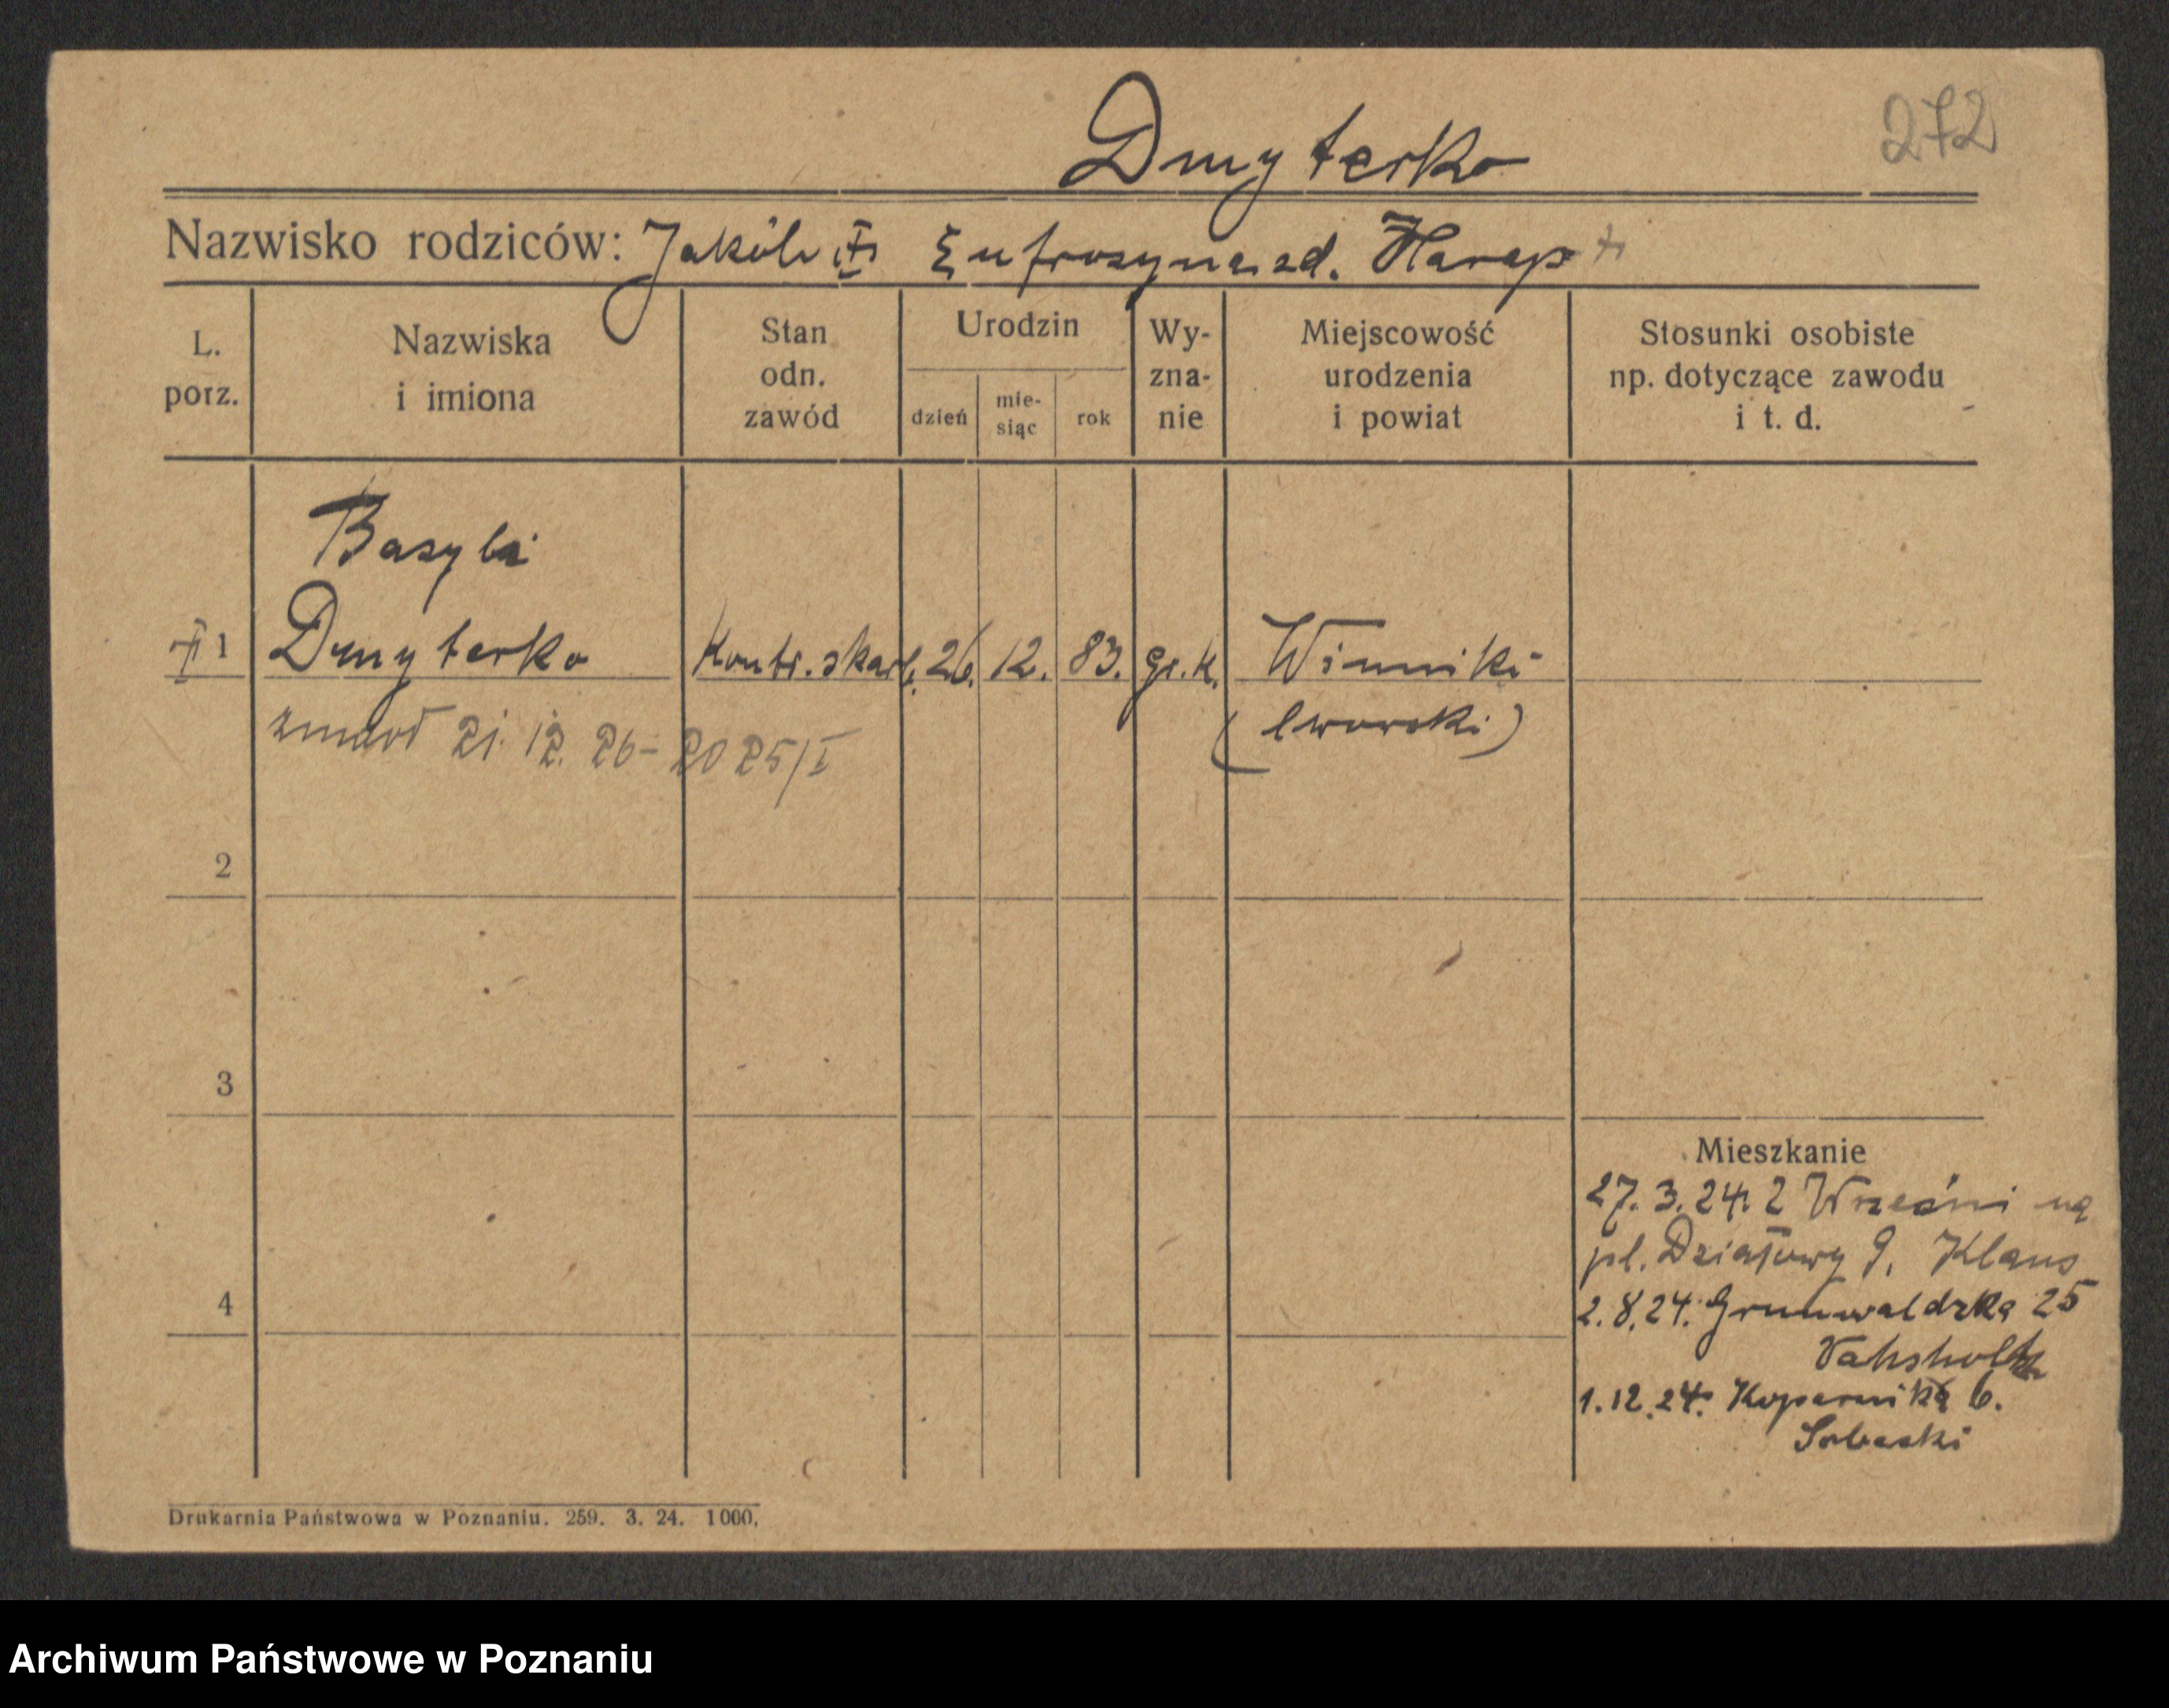 272
Dmyterko
Nazwisko rodziców: Jakób Eufrozyna zd. Harap
L. porz.
Nazwiska i imiona
Stan odn. zawód
Urodzin
dzień
mie-siąc
rok
Wy-zna-nie
Miejscowość urodzenia i powiat
Stosunki osobiste np. dotyczące zawodu i t. d.
Bazyli
1 Dmyterko Kontr. skarb. 26. 12. 83. gr. k. Winniki
(lwowski)
zmarł 21. 12. 26 - 2025/I
2
3
4
Mieszkanie
27. 3. 24. z Wrześni na
pl. Działowy 9, Klaus
2. 8. 24. Grunwaldzka 25
1. 12. 24. Kopernika 6.
Drukarnia Państwowa w Poznaniu. 259. 3. 24. 1000.
Archiwum Państwowe w Poznaniu